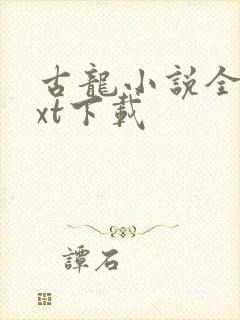 古龍小説全
xt下載
譚石